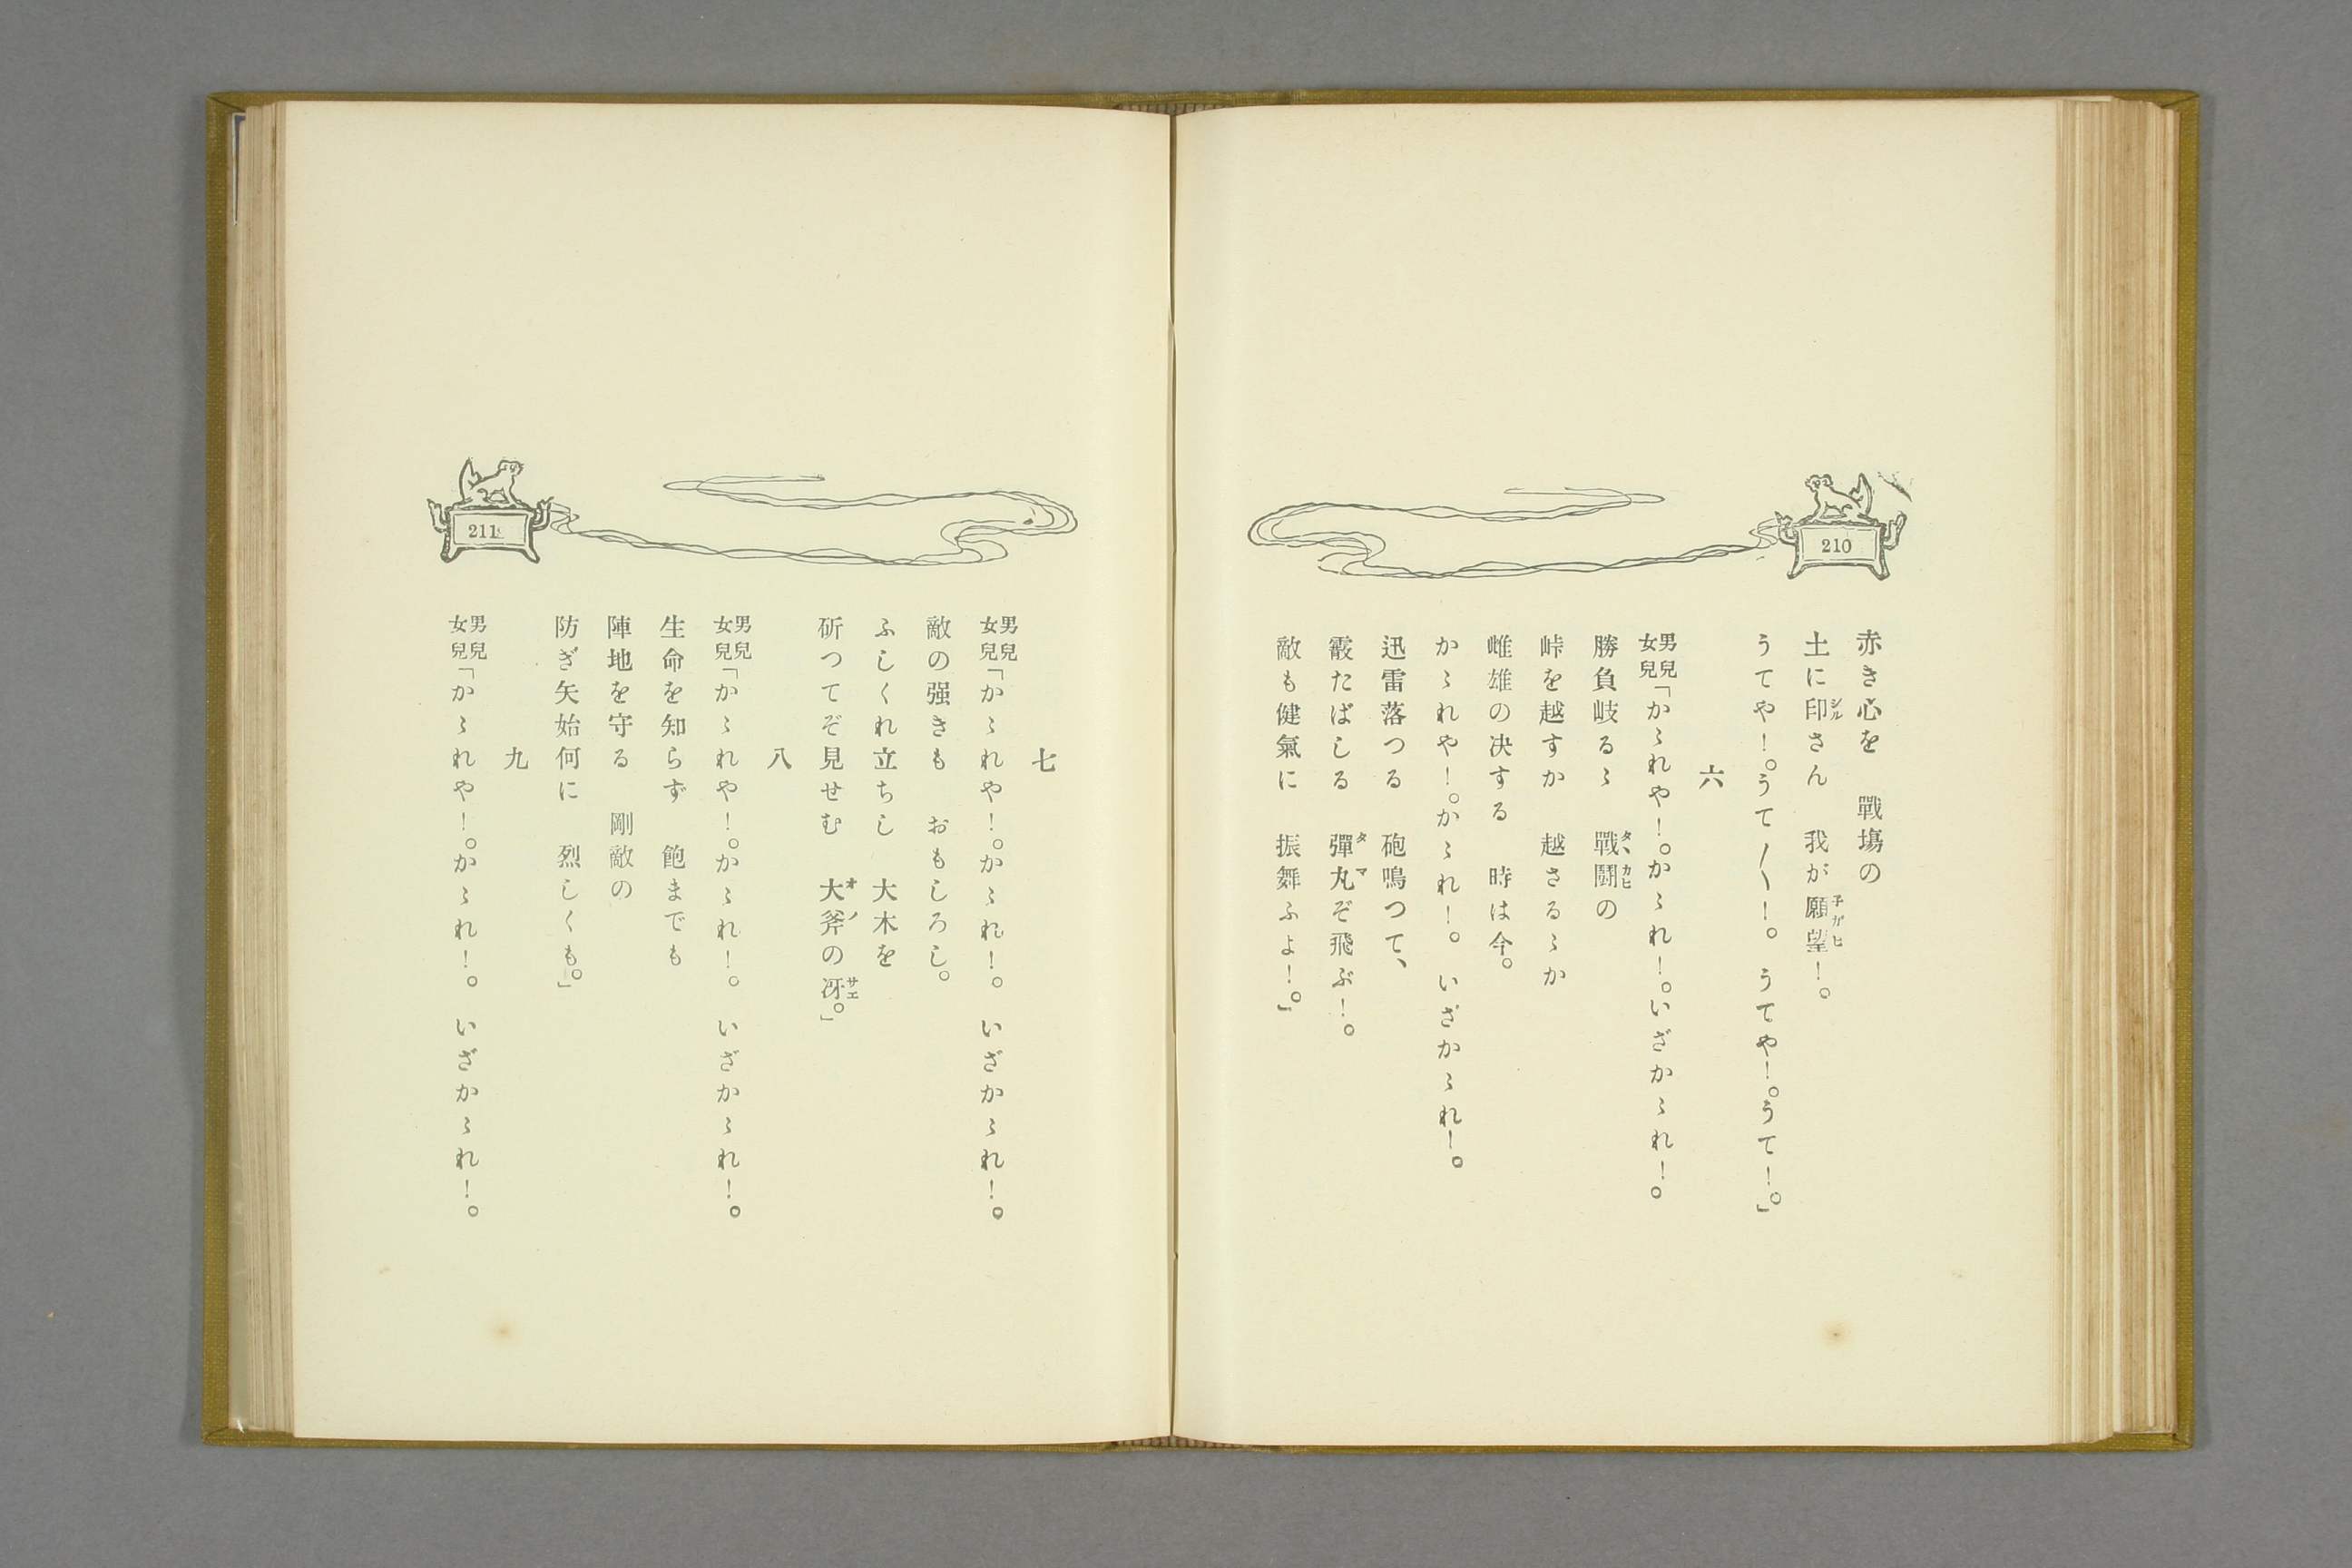 210
赤き心を　戰塲の
土に印さん　我が願望！。
うてや！。うて〱！。　うてや！。うて！。」
六
男兒女兒「かゝれや！。かゝれ！。いざかゝれ！。
勝負岐るゝ　戰鬪の
峠を越すか　越さるゝか
雌雄の决する　時は今。
かゝれや！。かゝれ！。　いざかゝれ！。
迅雷落つる　砲鳴つて、
霰たばしる　彈丸ぞ飛ぶ！。
敵も健氣に　振舞ふよ！。」
211
七
男兒女兒「かゝれや！。かゝれ！。　いざかゝれ！。
敵の强きも　おもしろし。
ふしくれ立ちし　大木を
斫つてぞ見せむ　大斧の冴。」
八
男兒女兒「かゝれや！。かゝれ！。　いざかゝれ！。
生命を知らず　飽までも
陣地を守る　剛敵の
防ぎ矢始何に　烈しくも。」
九
男兒女兒「かゝれや！。かゝれ！。　いざかゝれ！。